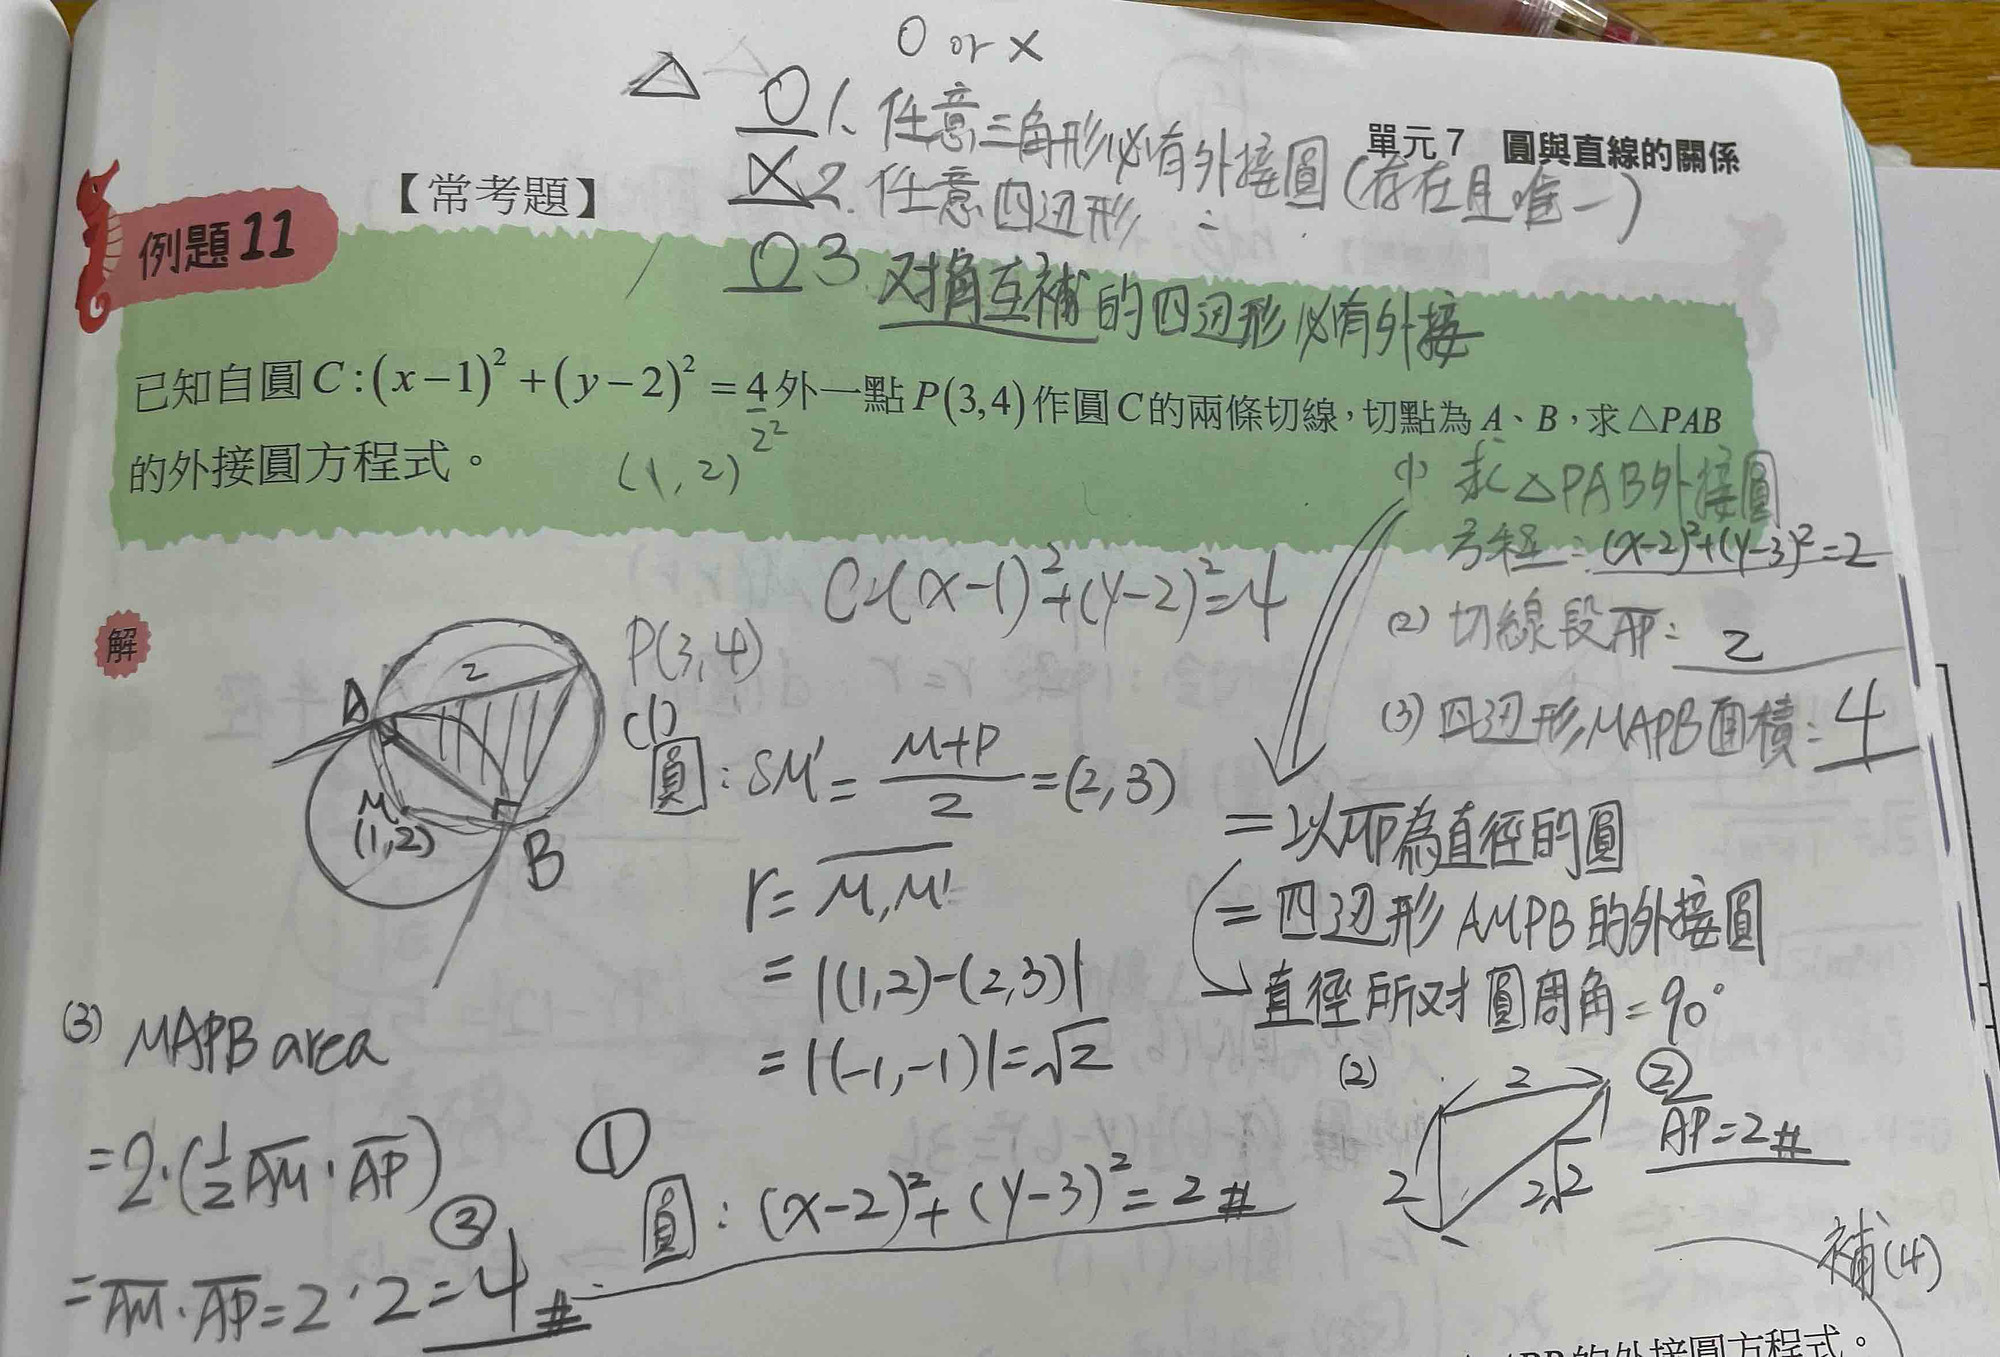 O or X
△ O 1. 任意三角形必有外接圓(存在且唯一)
單元 7 圓與直線的關係
X 2. 任意四边形 〃
【常考題】
例題 11
O 3. 对角互補的四边形必有外接
已知自圓 C : (x−1)² + (y−2)² = 4 外一點 P(3,4) 作圓 C 的兩條切線，切點為 A、B，求 △PAB
2²
的外接圓方程式。
(1,2)
(1) 求△PAB外接圓
方程: (x-2)²+(y-3)²=2
(2) 切線段AP: 2
(3) 四边形MAPB面積: 4
解
C:(x-1)²+(y-2)²=4
P(3,4)
2
A
M
(1,2)
B
(1)
圓: M' = (M+P)/2 = (2,3)
r = M,M'
= |(1,2)-(2,3)|
= |(-1,-1)| = √2
① 圓: (x-2)²+(y-3)²=2 #
= 以MP為直徑的圓
= 四边形 AMPB 的外接圓
→ 直徑所对圓周角=90°
(2)
2
2
2√2
② AP=2 #
(3) MAPB area
= 2·(½ AM·AP)
③
= AM·AP = 2·2 = 4 #
補(4)
的外接圓方程式。